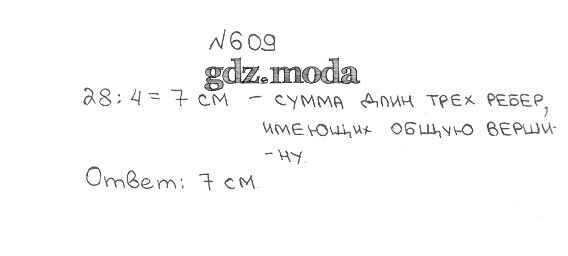 №609
gdz.moda
28 : 4 = 7 см - сумма длин трех ребер,
имеющих общую верши-
-ну.
Ответ: 7 см.